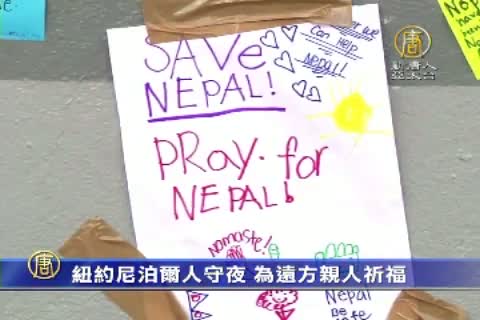 SAVE
NEPAL!
we
Can Help
Nepal!
PRay. for
NEPAL!
Namaste!
Nepal
Be
safe
唐
新唐人
亞太台
唐
紐約尼泊爾人守夜 為遠方親人祈福